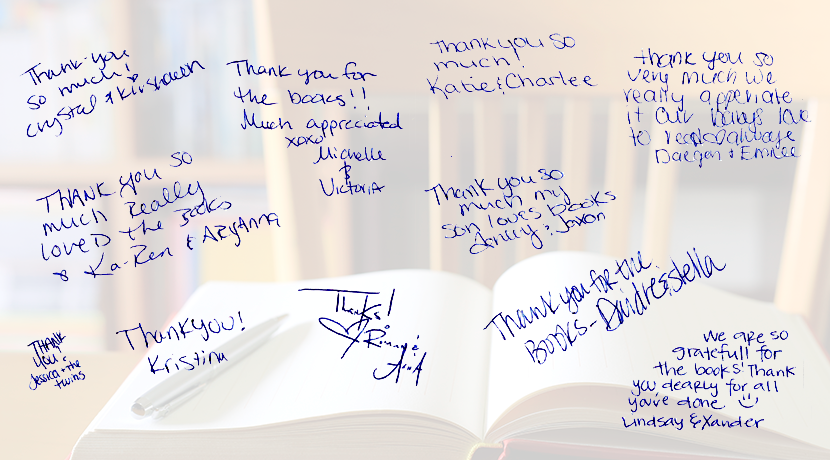 Thank you
so much!
Crystal & Kirshaewn
Thank you for
the books!!
Much appreciated
xoxo
Michelle
&
Victoria
Thank you so
much!
Katie & Charlee
thank you so
very much we
really apperiate
it our babys love
to read always
Daegan & Emilee
THANK you so
much Really
loved the Books
Ka-Ren & AryAnna
Thank you so
much my
son loves books
& Jaxon
THANK
you!
Jessica & the
twins
Thankyou!
Kristina
Thanks!
Roman &
AnnA
Thank you for the
BOOKS- Daidre & stella
We are so
gratefull for
the books! Thank
you dearly for all
you've done
Lindsay & Xander